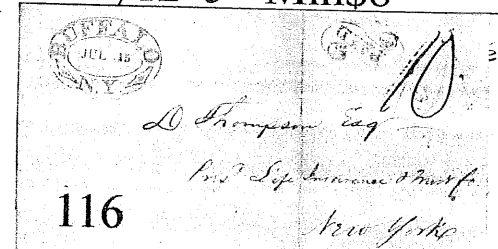 BUFFALO
JUL 15
N.Y.
10
D Thompson Esq
Life Insurance & Trust Co
New York
116